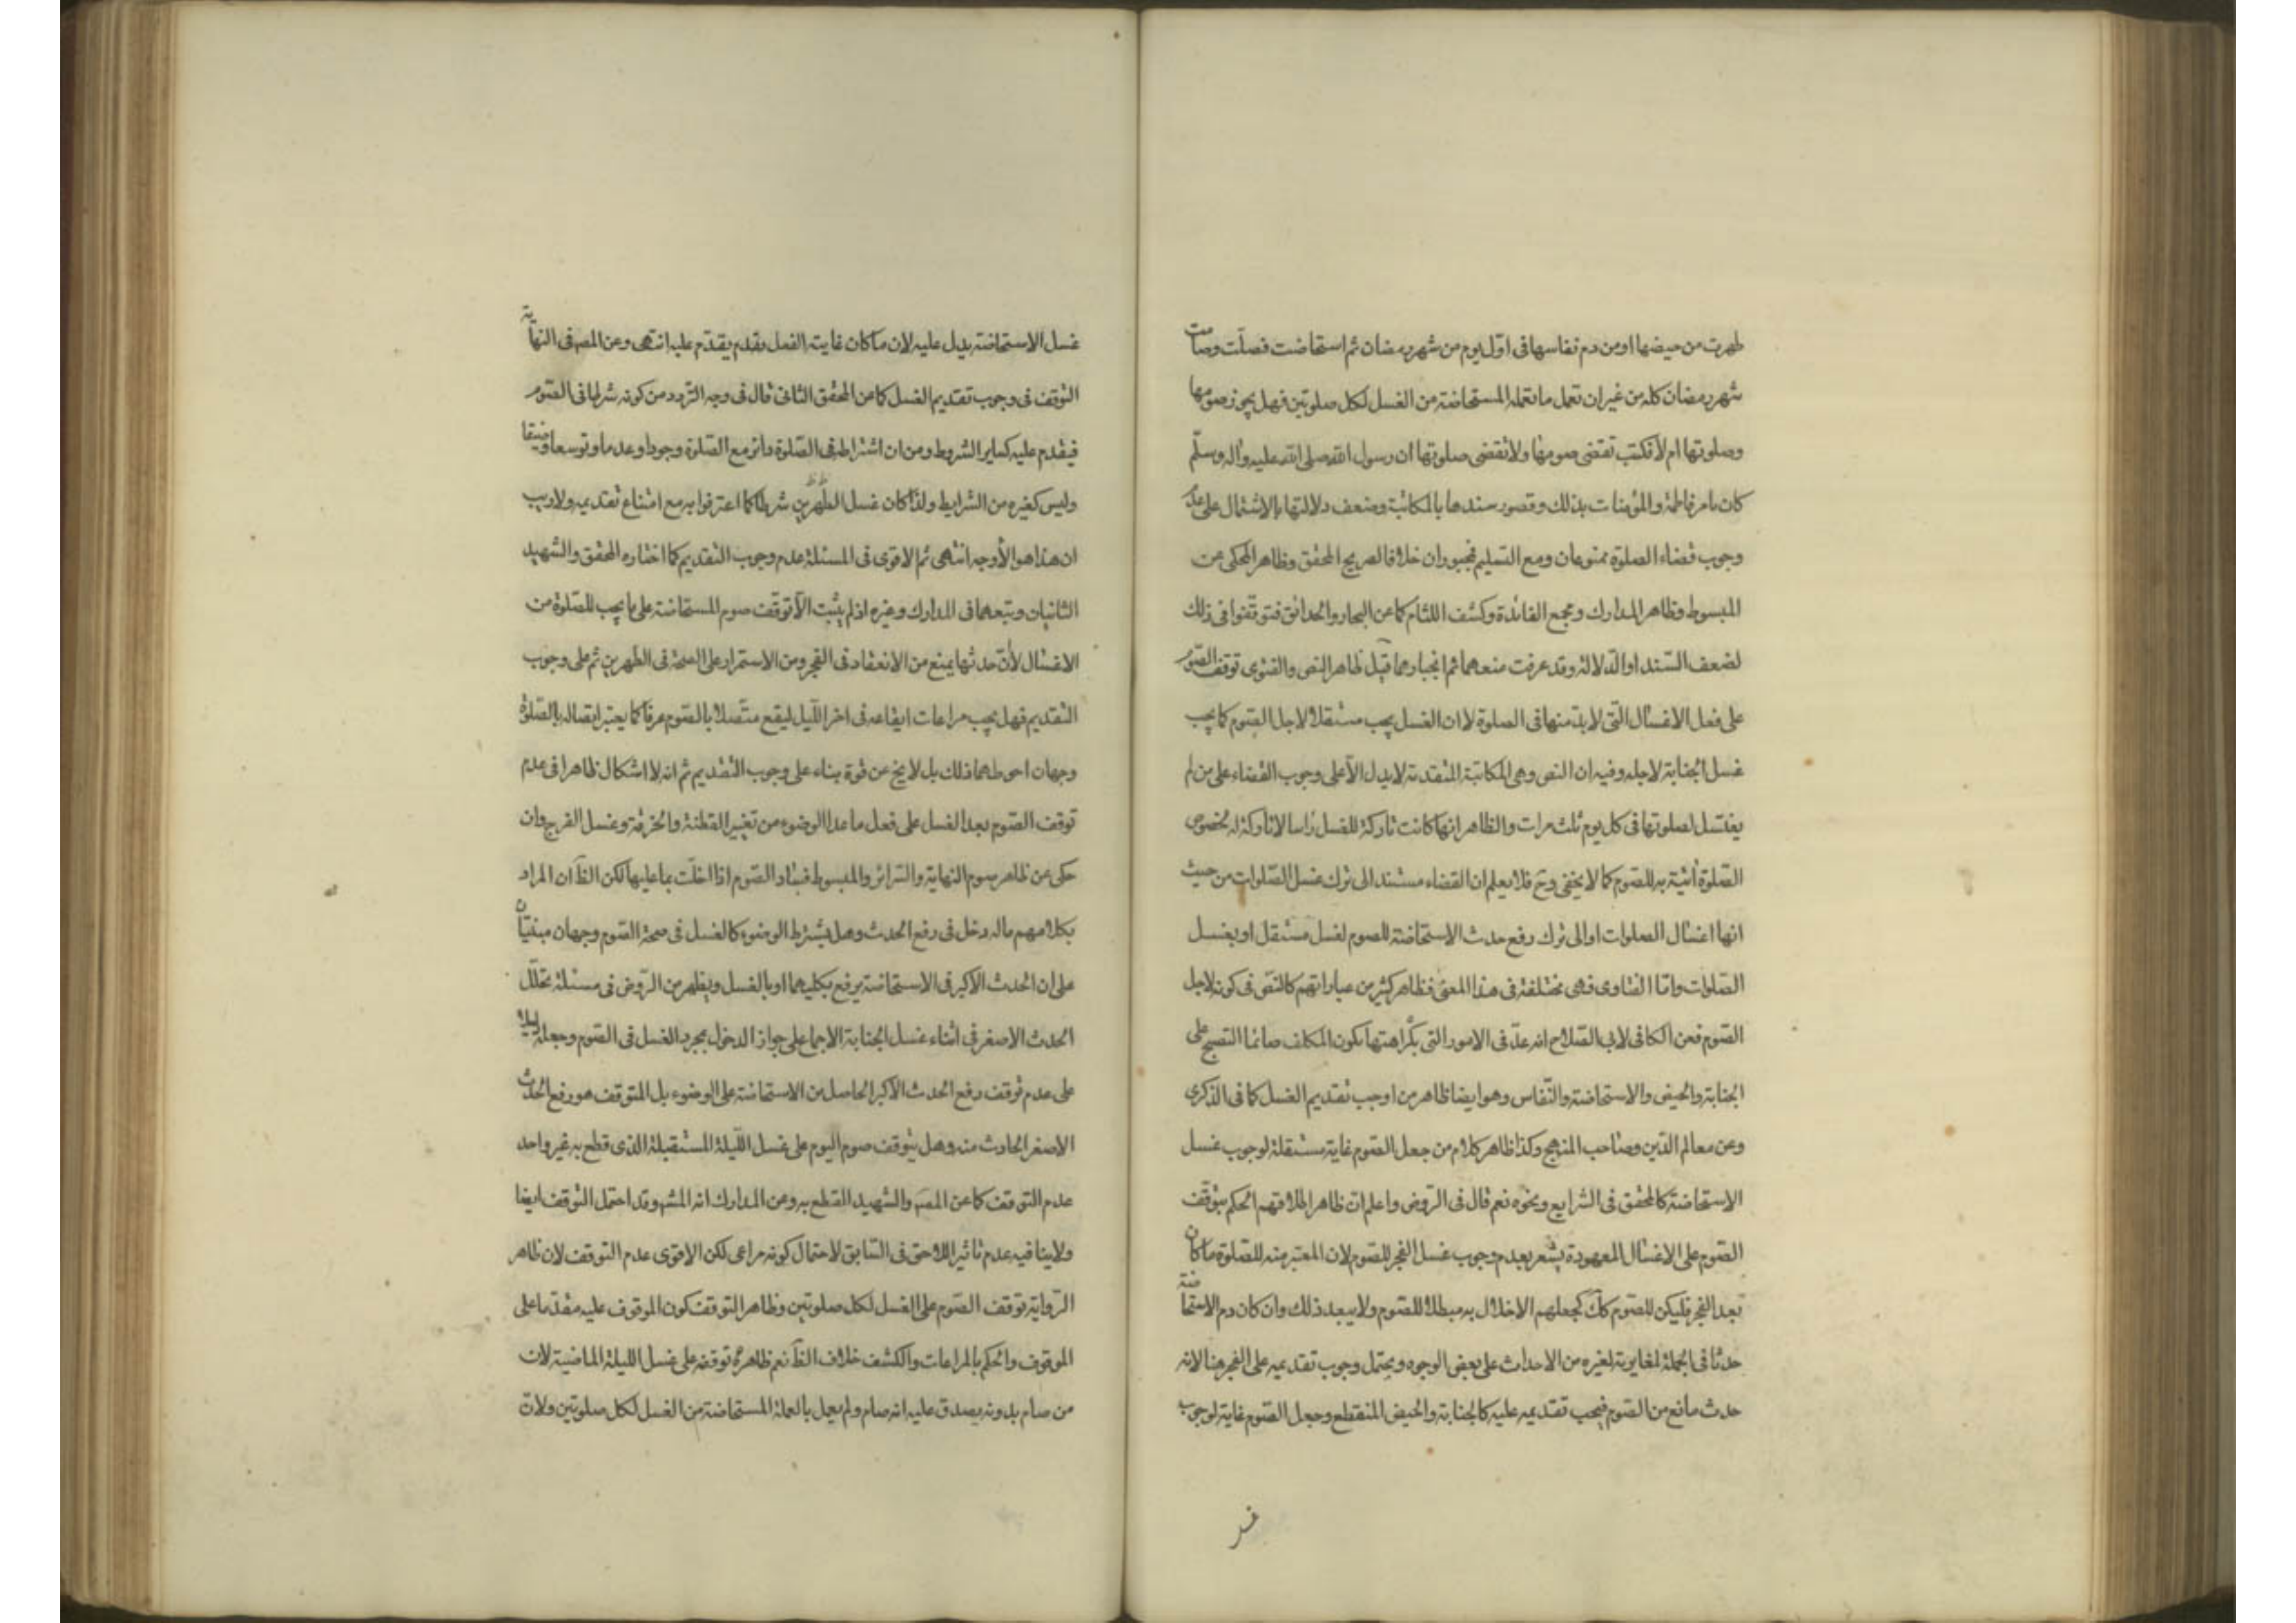 طهرت من حيضها او من دم نفاسها فى اوّل يوم من شهر رمضان ثم استحاضت فصلّت وصامت
شهر رمضان كله من غير ان تعمل ما تعمله المستحاضة من الغسل لكل صلوتين فهل يجوز صومها
وصلوتها ام لا فكتب تقضى صومها ولا تقضى صلوتها ان رسول الله صلى الله عليه واله وسلّم
كان يامر فاطمة والمؤمنات بذلك وقصور سندها بالمكاتبة وضعف دلالتها بالاشتمال على عدم
وجوب قضاء الصلوة ممنوعان ومع التسليم فمجبوران خلافا لصريح المحقق وظاهر المحكى عن
المبسوط وظاهر المدارك ومجمع الفائدة وكشف اللثام كما عن البحار والحدائق فتوقفوا فى ذلك
لضعف السّند او الدلالة وقد عرفت منعهما ثم انجبارهما قيل ظاهر النص والفتوى توقف الصّوم
على فعل الاغسال التى لا بدّ منها فى الصلوة لا ان الغسل يجب مستقلا لاجل الصّوم كما يجب
غسل الجنابة لاجله وفيه ان النص وهى المكاتبة المتقدمة لا يدل الّا على وجوب القضاء على من لم
يغتسل لصلوتها فى كل يوم ثلث مرات والظاهر انها كانت تاركة للغسل رأسا لا تاركة له لخصوص
الصّلوة اتية به للصّوم كما لا يخفى وح فلا يعلم ان القضاء مستند الى ترك غسل الصّلوات من حيث
انها اغسال الصلوات او الى ترك رفع حدث الاستحاضة للصوم لغسل مستقل او بغسل
الصّلوات وامّا الفتاوى فهى مختلفة فى هذا المعنى فظاهر كثير من عباراتهم كالنصّ فى كونه لاجل
الصّوم فعن الكافى لابى الصّلاح انه عدّ فى الامور التى بكراهتها يكون المكلف صائما التصبح على
الجنابة والحيض والاستحاضة والنّفاس وهو ايضا ظاهر من اوجب تقديم الغسل كما فى الذكرى
وعن معالم الدّين وصاحب المنهج وكذا ظاهر كلام من جعل الصّوم غاية مستقلة لوجوب غسل
الاستحاضة كالمحقق فى الشرايع ونحوه نعم قال فى الرّوض واعلم انّ ظاهر اطلاقهم الحكم بتوقّف
الصّوم على الاغسال المعهودة يشعر بعدم وجوب غسل الفجر للصّوم لان المعتبر منه للصّلوة ما كان
بعد الفجر فليكن للصّوم كك كجعلهم الاخلال به مبطلا للصّوم ولا يبعد ذلك وان كان دم الاستحاضة
حدثا فى الجملة لمغايرته لغيره من الاحداث على بعض الوجوه ويحتمل وجوب تقديمه على الفجر هنا لانه
حدث مانع من الصّوم فيجب تقديمه عليه كالجنابة والحيض المنقطع وجعل الصّوم غاية لوجوب
غسل
غسل الاستحاضة يدل عليه لان ما كان غايته الفعل يقدم يقدّم عليه انتهى وعن المصه فى النهاية
التوقف فى وجوب تقديم الغسل كما عن المحقق الثانى قال فى وجه التردد من كونه شرطا فى الصّوم
فيقدم عليه كساير الشروط ومن ان اشتراطه فى الصّلوة دائر مع الصّلوة وجودا وعدما وتوسعا وضيقا
وليس كغيره من الشرايط ولذا كان غسل الظهرين شرطا كما اعترفوا به مع امتناع تقديمه ولا ريب
ان هذا هو الأوجه انتهى ثم الاقوى فى المسئلة عدم وجوب التقديم كما اختاره المحقق والشهيد
الثانيان وتبعهما فى المدارك وغيره اذ لم يثبت الّا توقّف صوم المستحاضة على ما يجب للصّلوة من
الاغسال لأنّ حدثها يمنع من الانعقاد فى الفجر ومن الاستمرار على الصحة فى الظهرين ثم على وجوب
التقديم فهل يجب مراعات ايقاعه فى اخر اللّيل ليقع متّصلا بالصّوم عرفا كما يعتبر ايصاله بالصّلوة
وجهان احوطهما ذلك بل لا يخ عن قوة بناء على وجوب التقديم ثم انه لا اشكال ظاهرا فى عدم
توقف الصّوم بعد الغسل على فعل ما عدا الوضوء من تغيير القطنة والخرقة وغسل الفرج وان
حكى عن ظاهر صوم النهاية والسّرائر والمبسوط فساد الصّوم اذا اخلّت بما عليها لكن الظ ان المراد
بكلامهم ماله دخل فى رفع الحدث وهل يشترط الوضوء كالغسل فى صحة الصّوم وجهان مبنيّان
على ان الحدث الاكبر فى الاستحاضة يرفع بكليهما او بالغسل ويظهر من الرّوض فى مسئلة تخلّل
الحدث الاصغر فى اثناء غسل الجنابة الاجماع على جواز الدخول بمجرد الغسل فى الصّوم وجعله دليلا
على عدم توقف رفع الحدث الاكبر الحاصل من الاستحاضة على الوضوء بل المتوقف هو رفع الحدث
الاصغر الحادث منه وهل يتوقف صوم اليوم على غسل اللّيلة المستقبلة الذى قطع به غير واحد
عدم التوقف كما عن المصه والشهيد القطع به وعن المدارك انه المشهور وقد احتمل التوقف ايضا
ولا ينافيه عدم تأثير اللاحق فى السّابق لاحتمال كونه مراعى لكن الاقوى عدم التوقف لان ظاهر
الرّواية توقف الصّوم على الغسل لكل صلوتين وظاهر التوقف كون الموقوف عليه مقدّما على
الموقوف والحكم بالمراعات والكشف خلاف الظ نعم ظاهره توقفه على غسل الليلة الماضية لان
من صام بدونه يصدق عليه انه صام ولم يعمل بالعملة المستحاضة من الغسل لكل صلوتين ولانّ